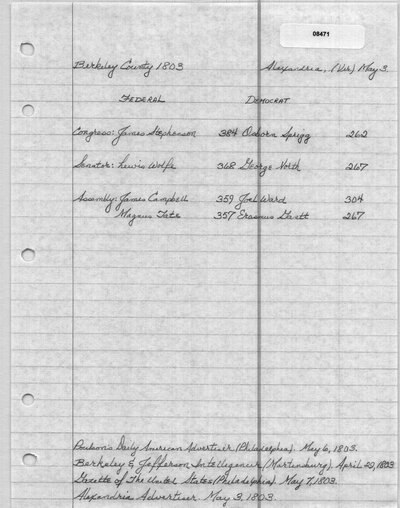 08471
Berkeley County 1803 Alexandria, (Vir) May 3.
FEDERAL DEMOCRAT
Congress: James Stephenson 384 Osborn Sprigg 262
Senator: Lewis Wolfe 368 George North 267
Assembly: James Campbell 359 Joel Ward 304
Magnus Tate 357 Erasmus Gantt 267
Poulson's Daily American Advertiser (Philadelphia). May 6, 1803.
Berkeley & Jefferson Intelligencer (Martinsburg). April 29, 1803
Gazette of The United States (Philadelphia). May 7, 1803.
Alexandria Advertiser May 3, 1803.